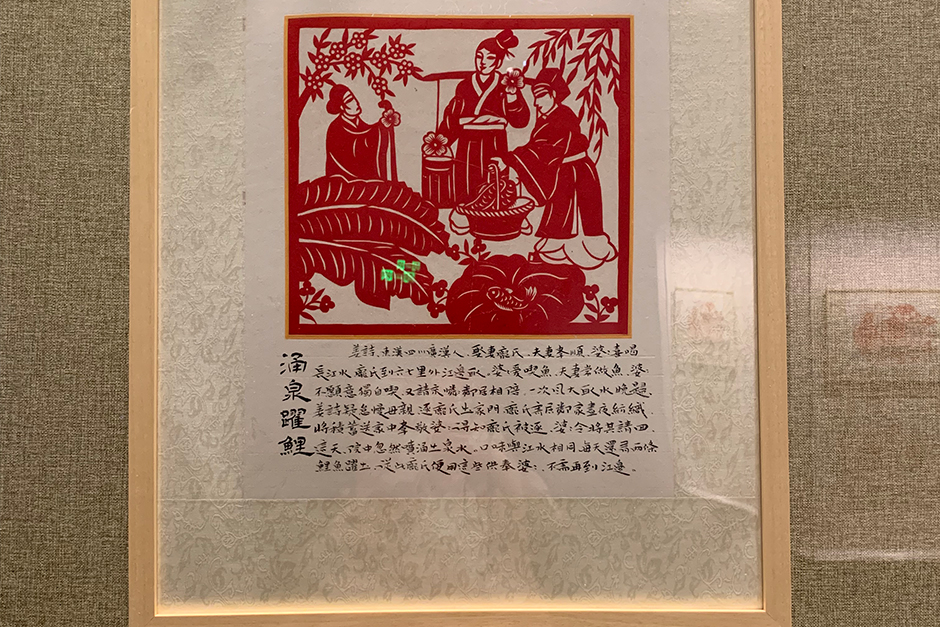 涌泉躍鯉
姜詩,東漢四川廣漢人,娶妻龐氏。夫妻孝順,婆:喜喝
長江水,龐氏到六七里外江邊取。婆愛喫魚,夫妻常做魚,婆:
不願意獨自喫,又請鄰居相陪。一次風大取水晚
姜詩疑怠慢母親,逐龐氏出家門。龐氏寄居鄰家晝夜紡織,
將積蓄送家中孝敬婆:。得知龐氏被逐,婆:令將其請回
這天,院中忽然噴涌出泉水,口味與江水相同,每天還有兩條
鯉魚躍出,從此龐氏便用這些供奉婆:,不需再到江邊。